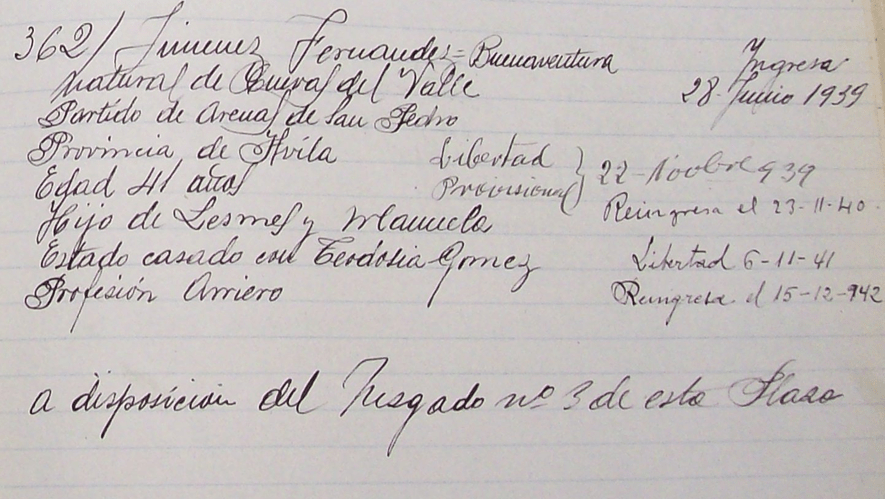 362/ Jimenez Fernandez = Buenaventura
natural de Cuevas del Valle
Partido de Arenas de San Pedro
Provincia de Avila
Edad 41 años
Hijo de Lesmes y Manuela
Estado casado con Teodosia Gomez
Profesión Arriero
Ingresa
28 Junio 1939
Libertad
Provisional } 22-Novbre 939
Reingresa el 23-11-40.
Libertad 6-11-41
Reingresa el 15-12-942
a disposicion del Jusgado nº 3 de esta Plaza